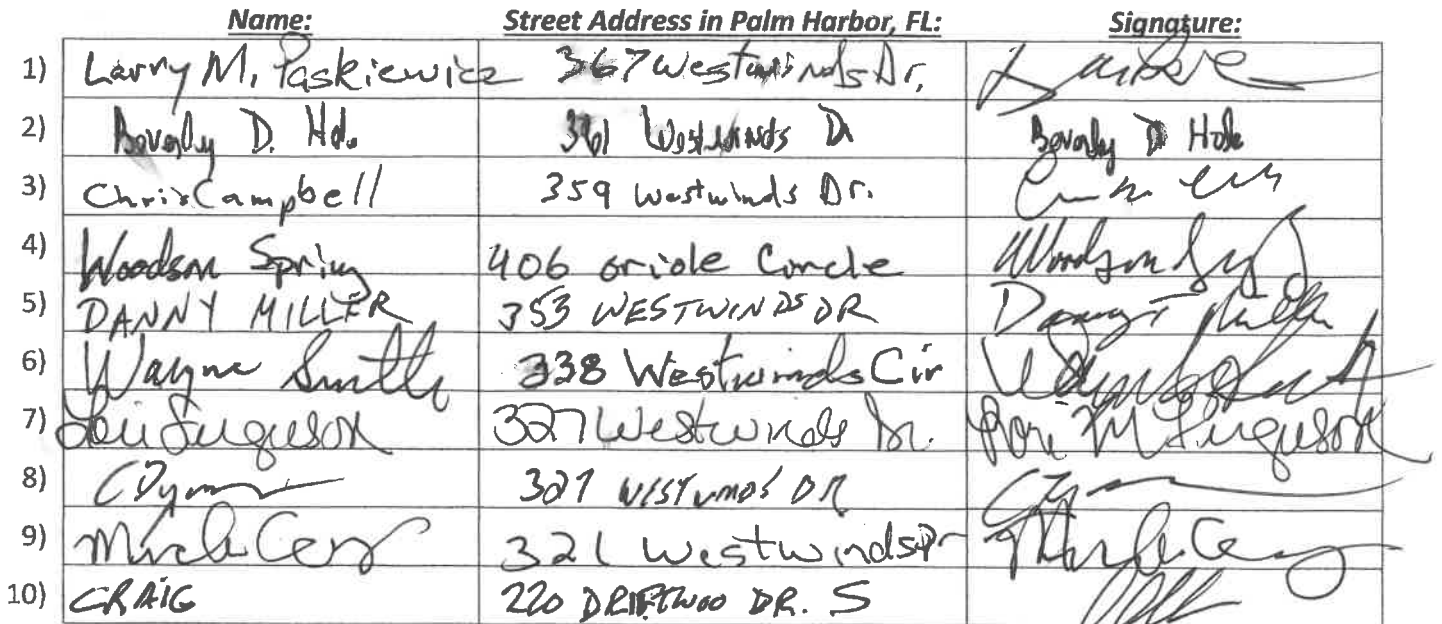 Name: Street Address in Palm Harbor, FL: Signature:
1) Larry M. Paskiewicz 367 Westwinds Dr.
2) Beverly D. Hole 361 Westwinds D Beverly D Hole
3) Chris Campbell 359 Westwinds Dr.
4) Woodson Spring 406 oriole Circle Woodson
5) DANNY MILLER 353 WESTWINDS DR Danny Miller
6) Wayne Smith 338 Westwinds Cir
7) Lori Ferguson 327 Westwinds Dr. Lori M Ferguson
8) 327 WESTWINDS DR
9) 321 Westwinds Dr
10) CRAIG 220 DRIFTWOO DR. S